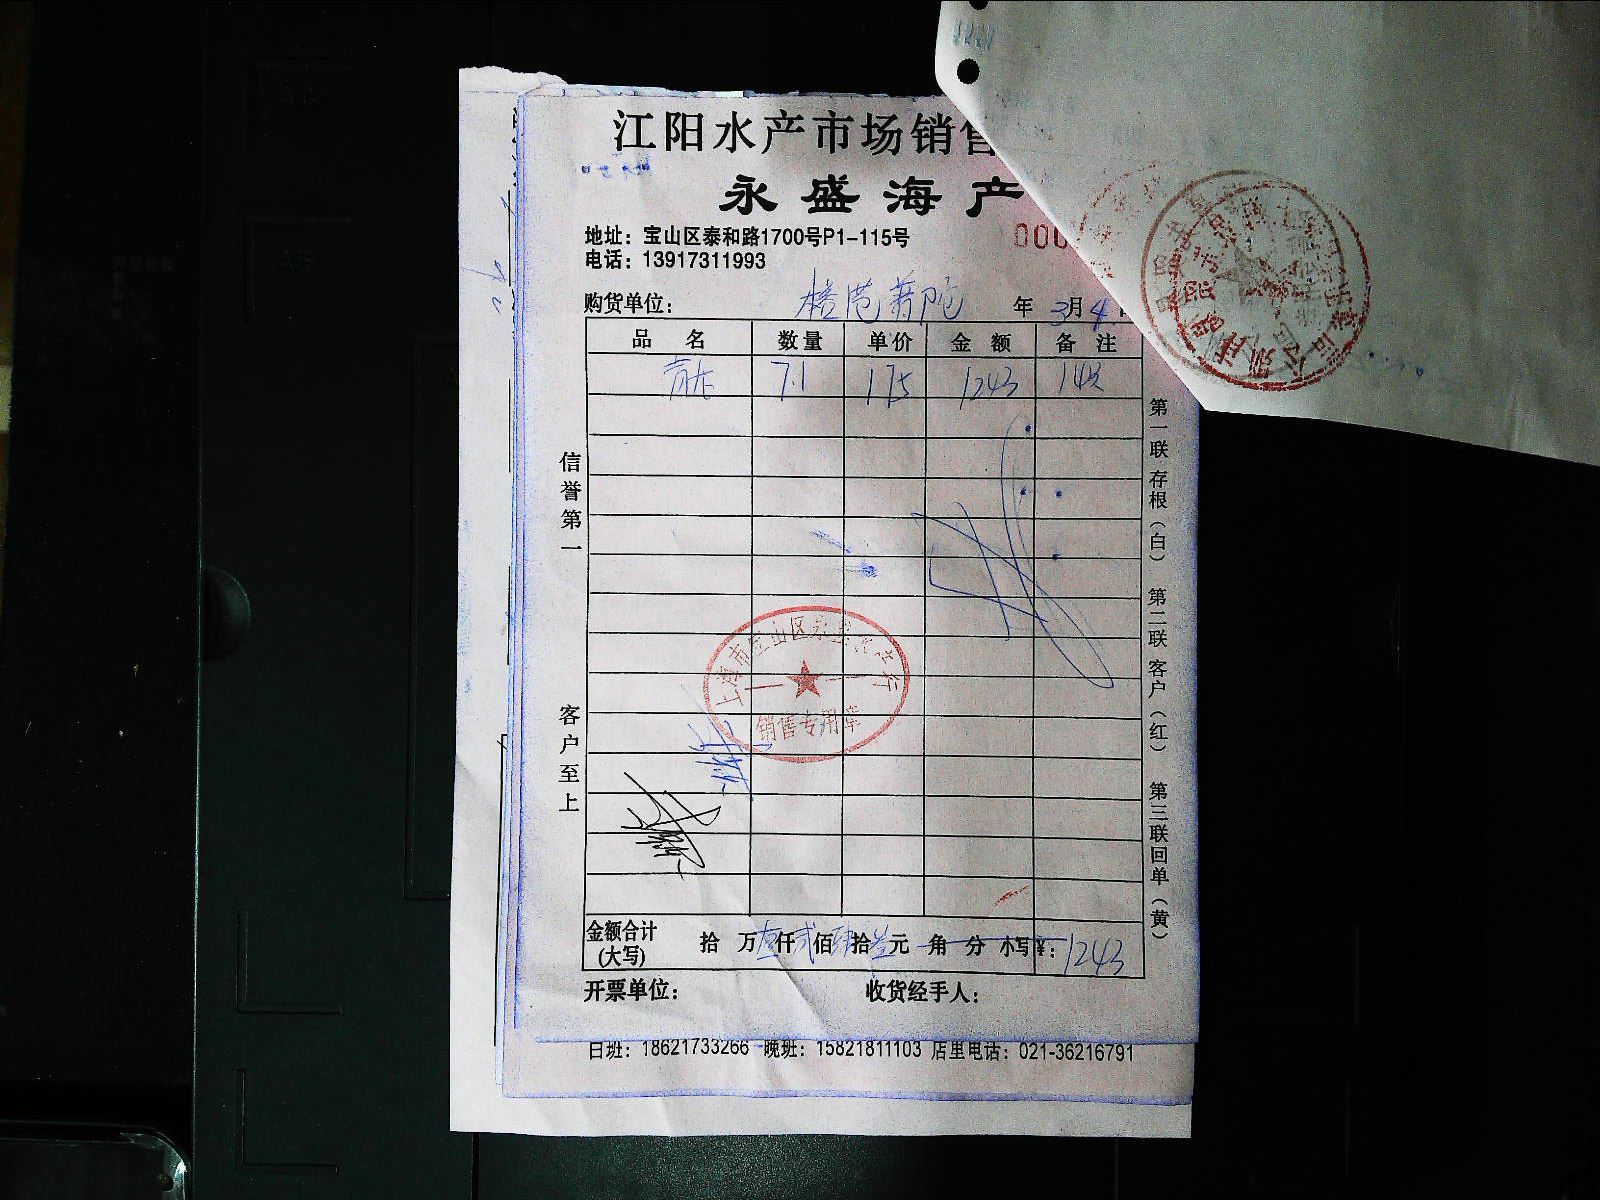 江阳水产市场销售
永盛海产
地址：宝山区泰和路1700号P1-115号
000
电话：13917311993
购货单位： 年 3月4
品 名 数量 单价 金 额 备 注
青龙 7.1 175 1243 1
信誉第一
客户至上
第一联 存根（白） 第二联 客户（红） 第三联 回单（黄）
上海市宝山区永盛
销售专用章
金额合计 (大写) 拾 万壹仟贰佰肆拾叁元 角 分 小写¥：1243
开票单位： 收货经手人：
日班：18621733266 晚班：15821811103 店里电话：021-36216791